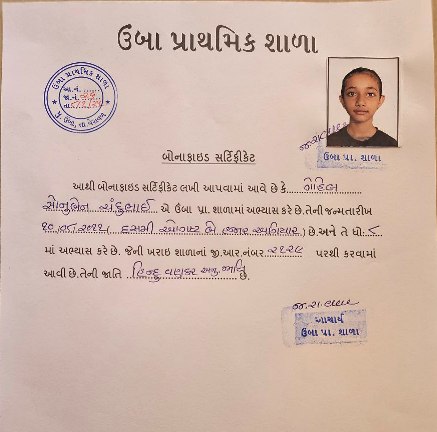 ઉંબા પ્રાથમિક શાળા
ઉંબા પ્રાથમિક શાળા
આ.નં.
જા.નં.
તા.
ઉંબા પ્રા. શાળા
બોનાફાઇડ સર્ટિફીકેટ
આથી બોનાફાઇડ સર્ટિફીકેટ લખી આપવામાં આવે છે કે ગોહિલ
સોનુબેન ચંદુભાઈ એ ઉંબા પ્રા. શાળામાં અભ્યાસ કરે છે.તેની જન્મતારીખ
૧૦/૦૮/૨૦૧૧( દસમી ઓગષ્ટ બે હજાર અગિયાર) છે.અને તે ધો. ૮
માં અભ્યાસ કરે છે. જેની ખરાઇ શાળાનાં જી.આર.નંબર ૨૧૨૯ પરથી કરવામાં
આવી છે.તેની જાતિ હિન્દુ વણકર અનુ.જાતિ છે.
આચાર્ય
ઉંબા પ્રા. શાળા